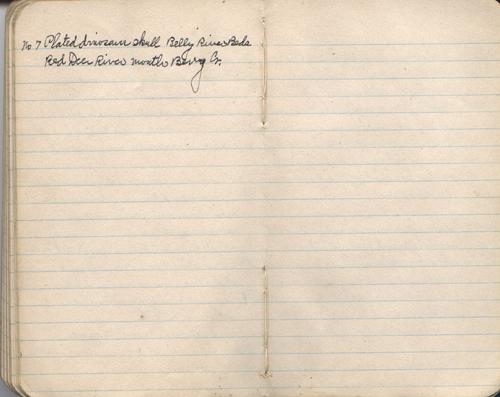 No 7 Plated dinosaur skull Belly River Beds
Red Deer River mouth Berry Cr.